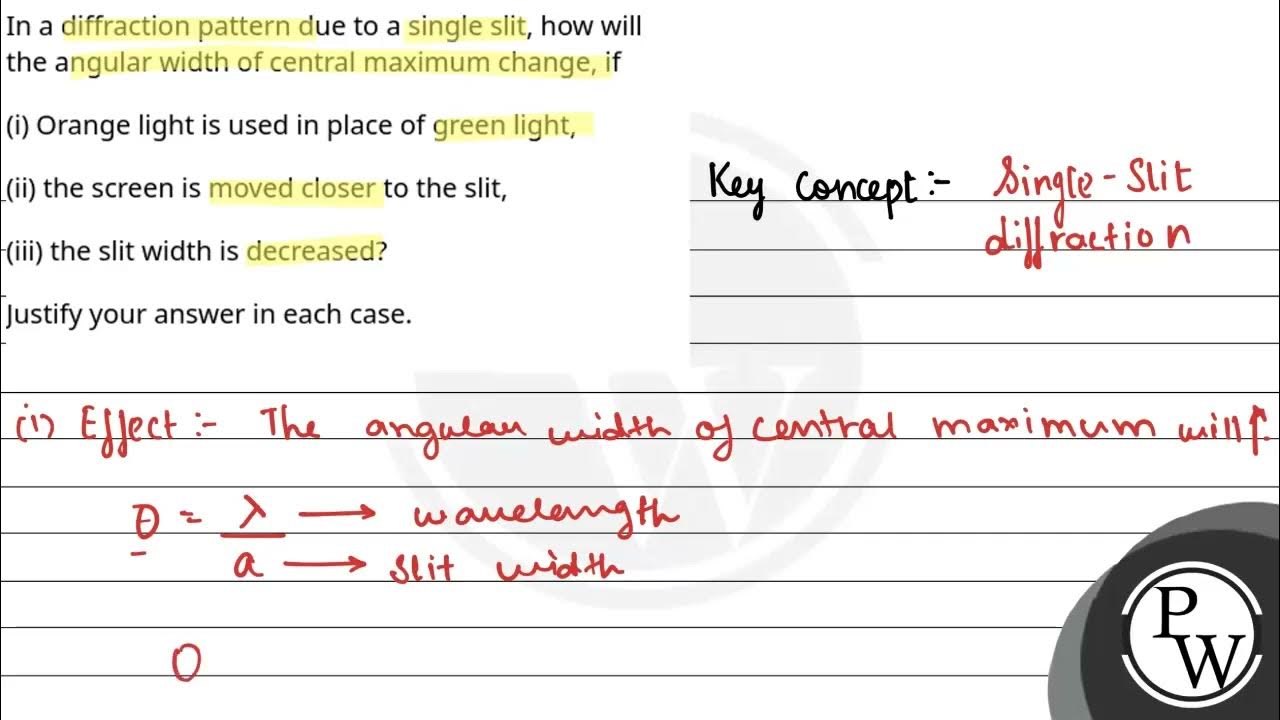 In a diffraction pattern due to a single slit, how will
the angular width of central maximum change, if
(i) Orange light is used in place of green light,
(ii) the screen is moved closer to the slit,
(iii) the slit width is decreased?
Justify your answer in each case.
Key concept :- Single-Slit
diffraction
(i) Effect :- The angular width of central maximum will ↑.
θ = λ → wavelength
a → slit width
0
P
W